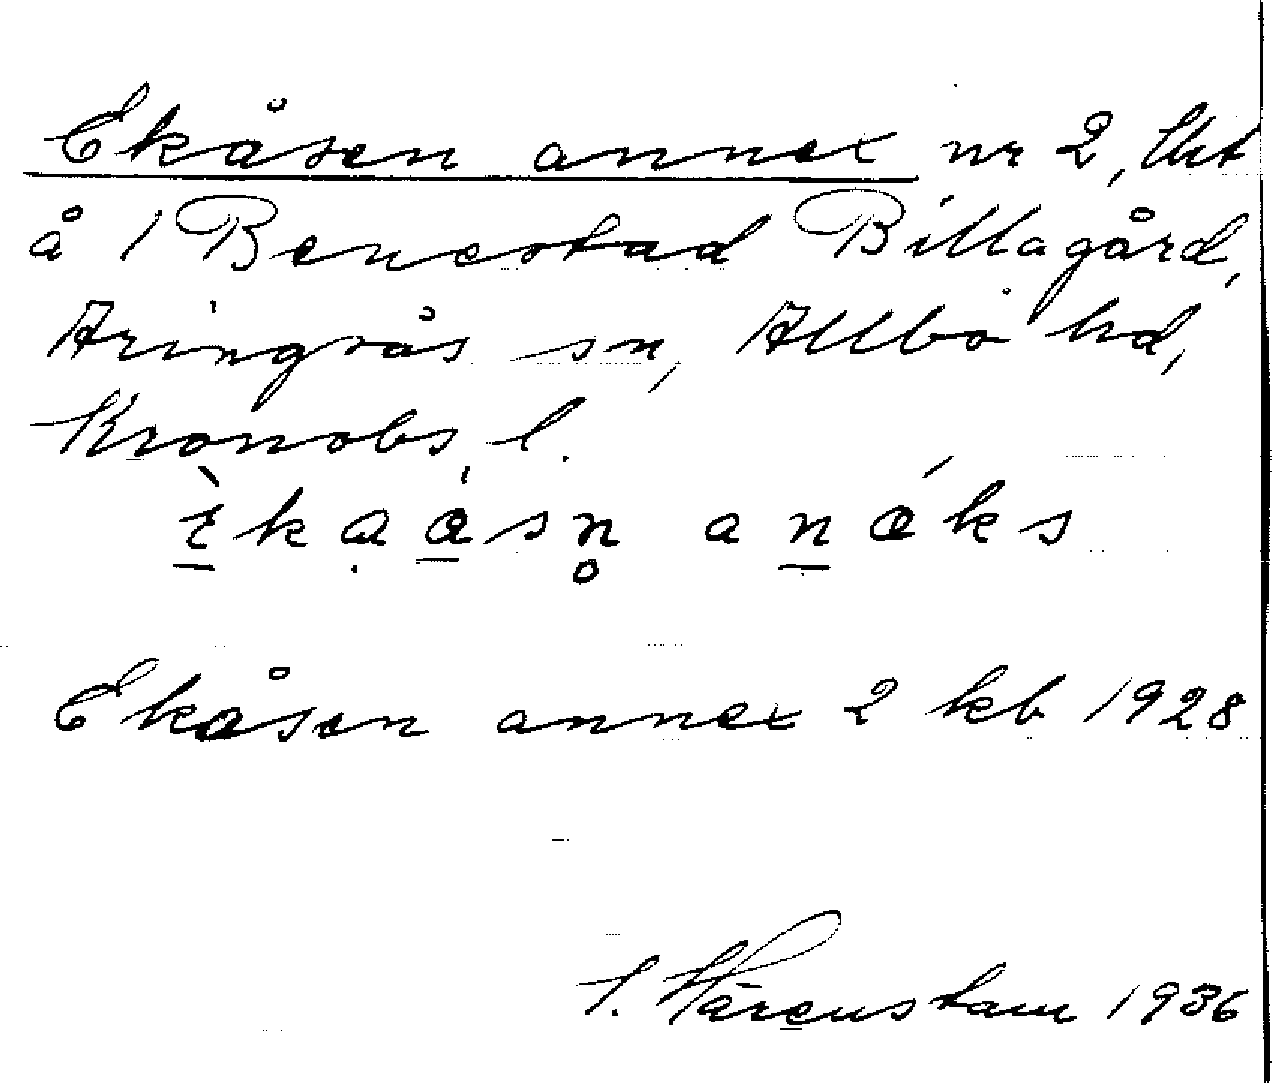 Ekåsen annex nr 2, lht
å 1 Benestad Billagård,
Aringsås sn, Allbo hd,
Kronobs. l.
Ekåsen annex 2 kb 1928
Härenstam 1936